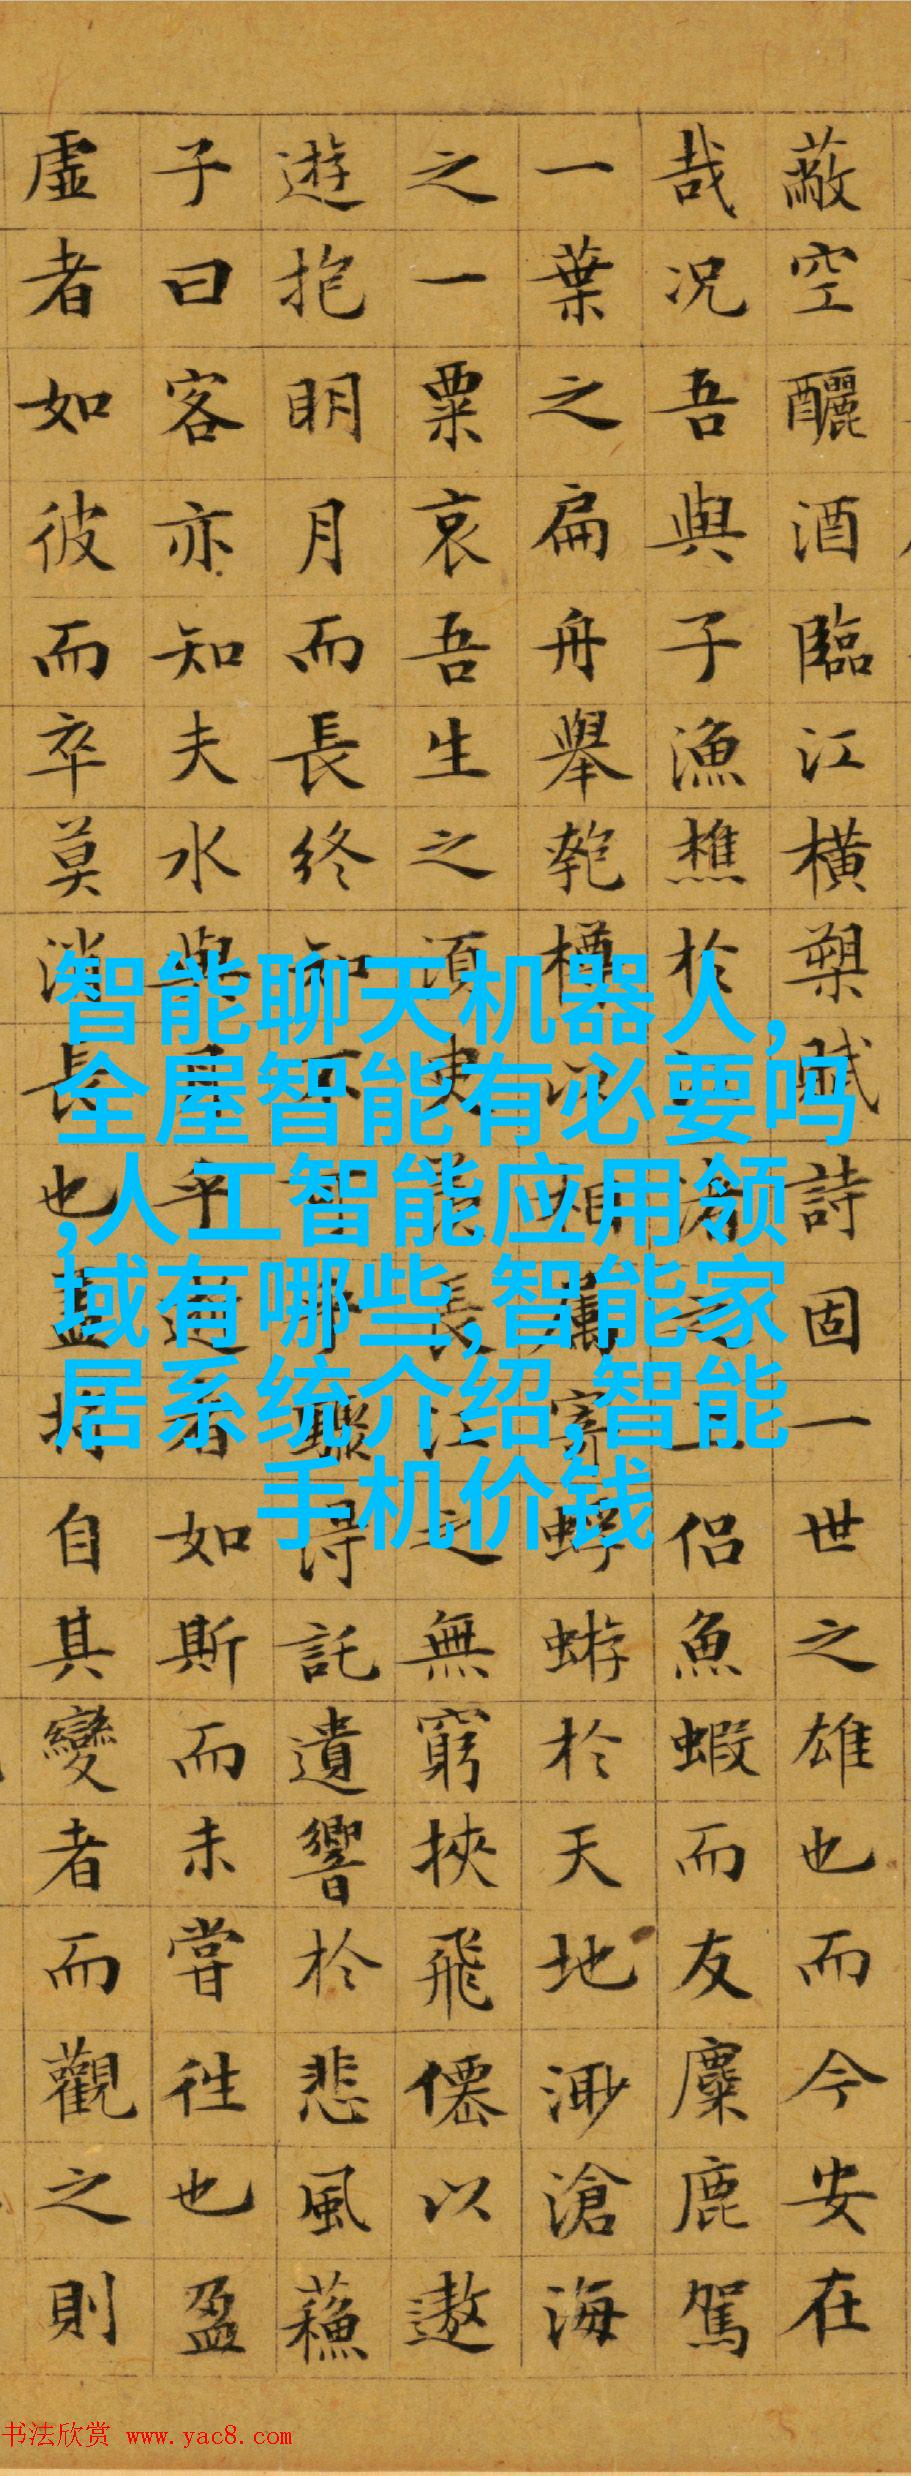 蔽空釃酒臨江橫槊賦詩固一世之雄也而今安在
哉况吾與子漁樵於渚之上侶魚蝦而友麋鹿駕
一葉之扁舟舉匏樽以相屬寄蜉蝣於天地渺滄海
之一粟哀吾生之須臾羨長江之無窮挾飛僊以遨
遊抱明月而長終知不可乎驟得託遺響於悲風蘓
子曰客亦知夫水與月乎逝者如斯而未嘗徃也盈
虛者如彼而卒莫消長也蓋將自其變者而觀之則
智能聊天机器人,
全屋智能有必要吗
,人工智能应用领
域有哪些,智能家
居系统介绍,智能
手机价钱
书法欣赏 www.yac8.com